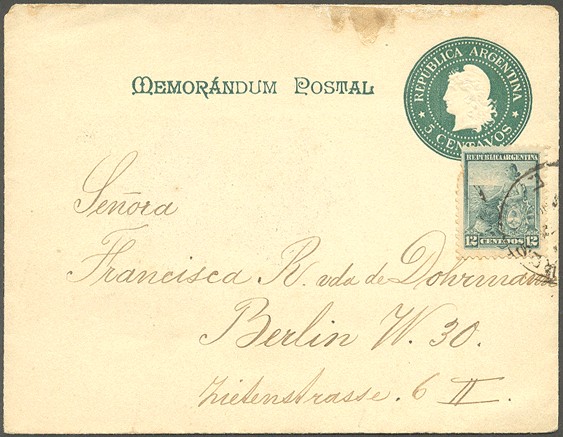 REPUBLICA ARGENTINA
5 CENTAVOS
MEMORÁNDUM POSTAL
REPUBLICA ARGENTINA
12 CENTAVOS 12
Señora
Francisca R. vda de Dohrmann
Berlin W. 30.
Zietenstrasse. 6 II.